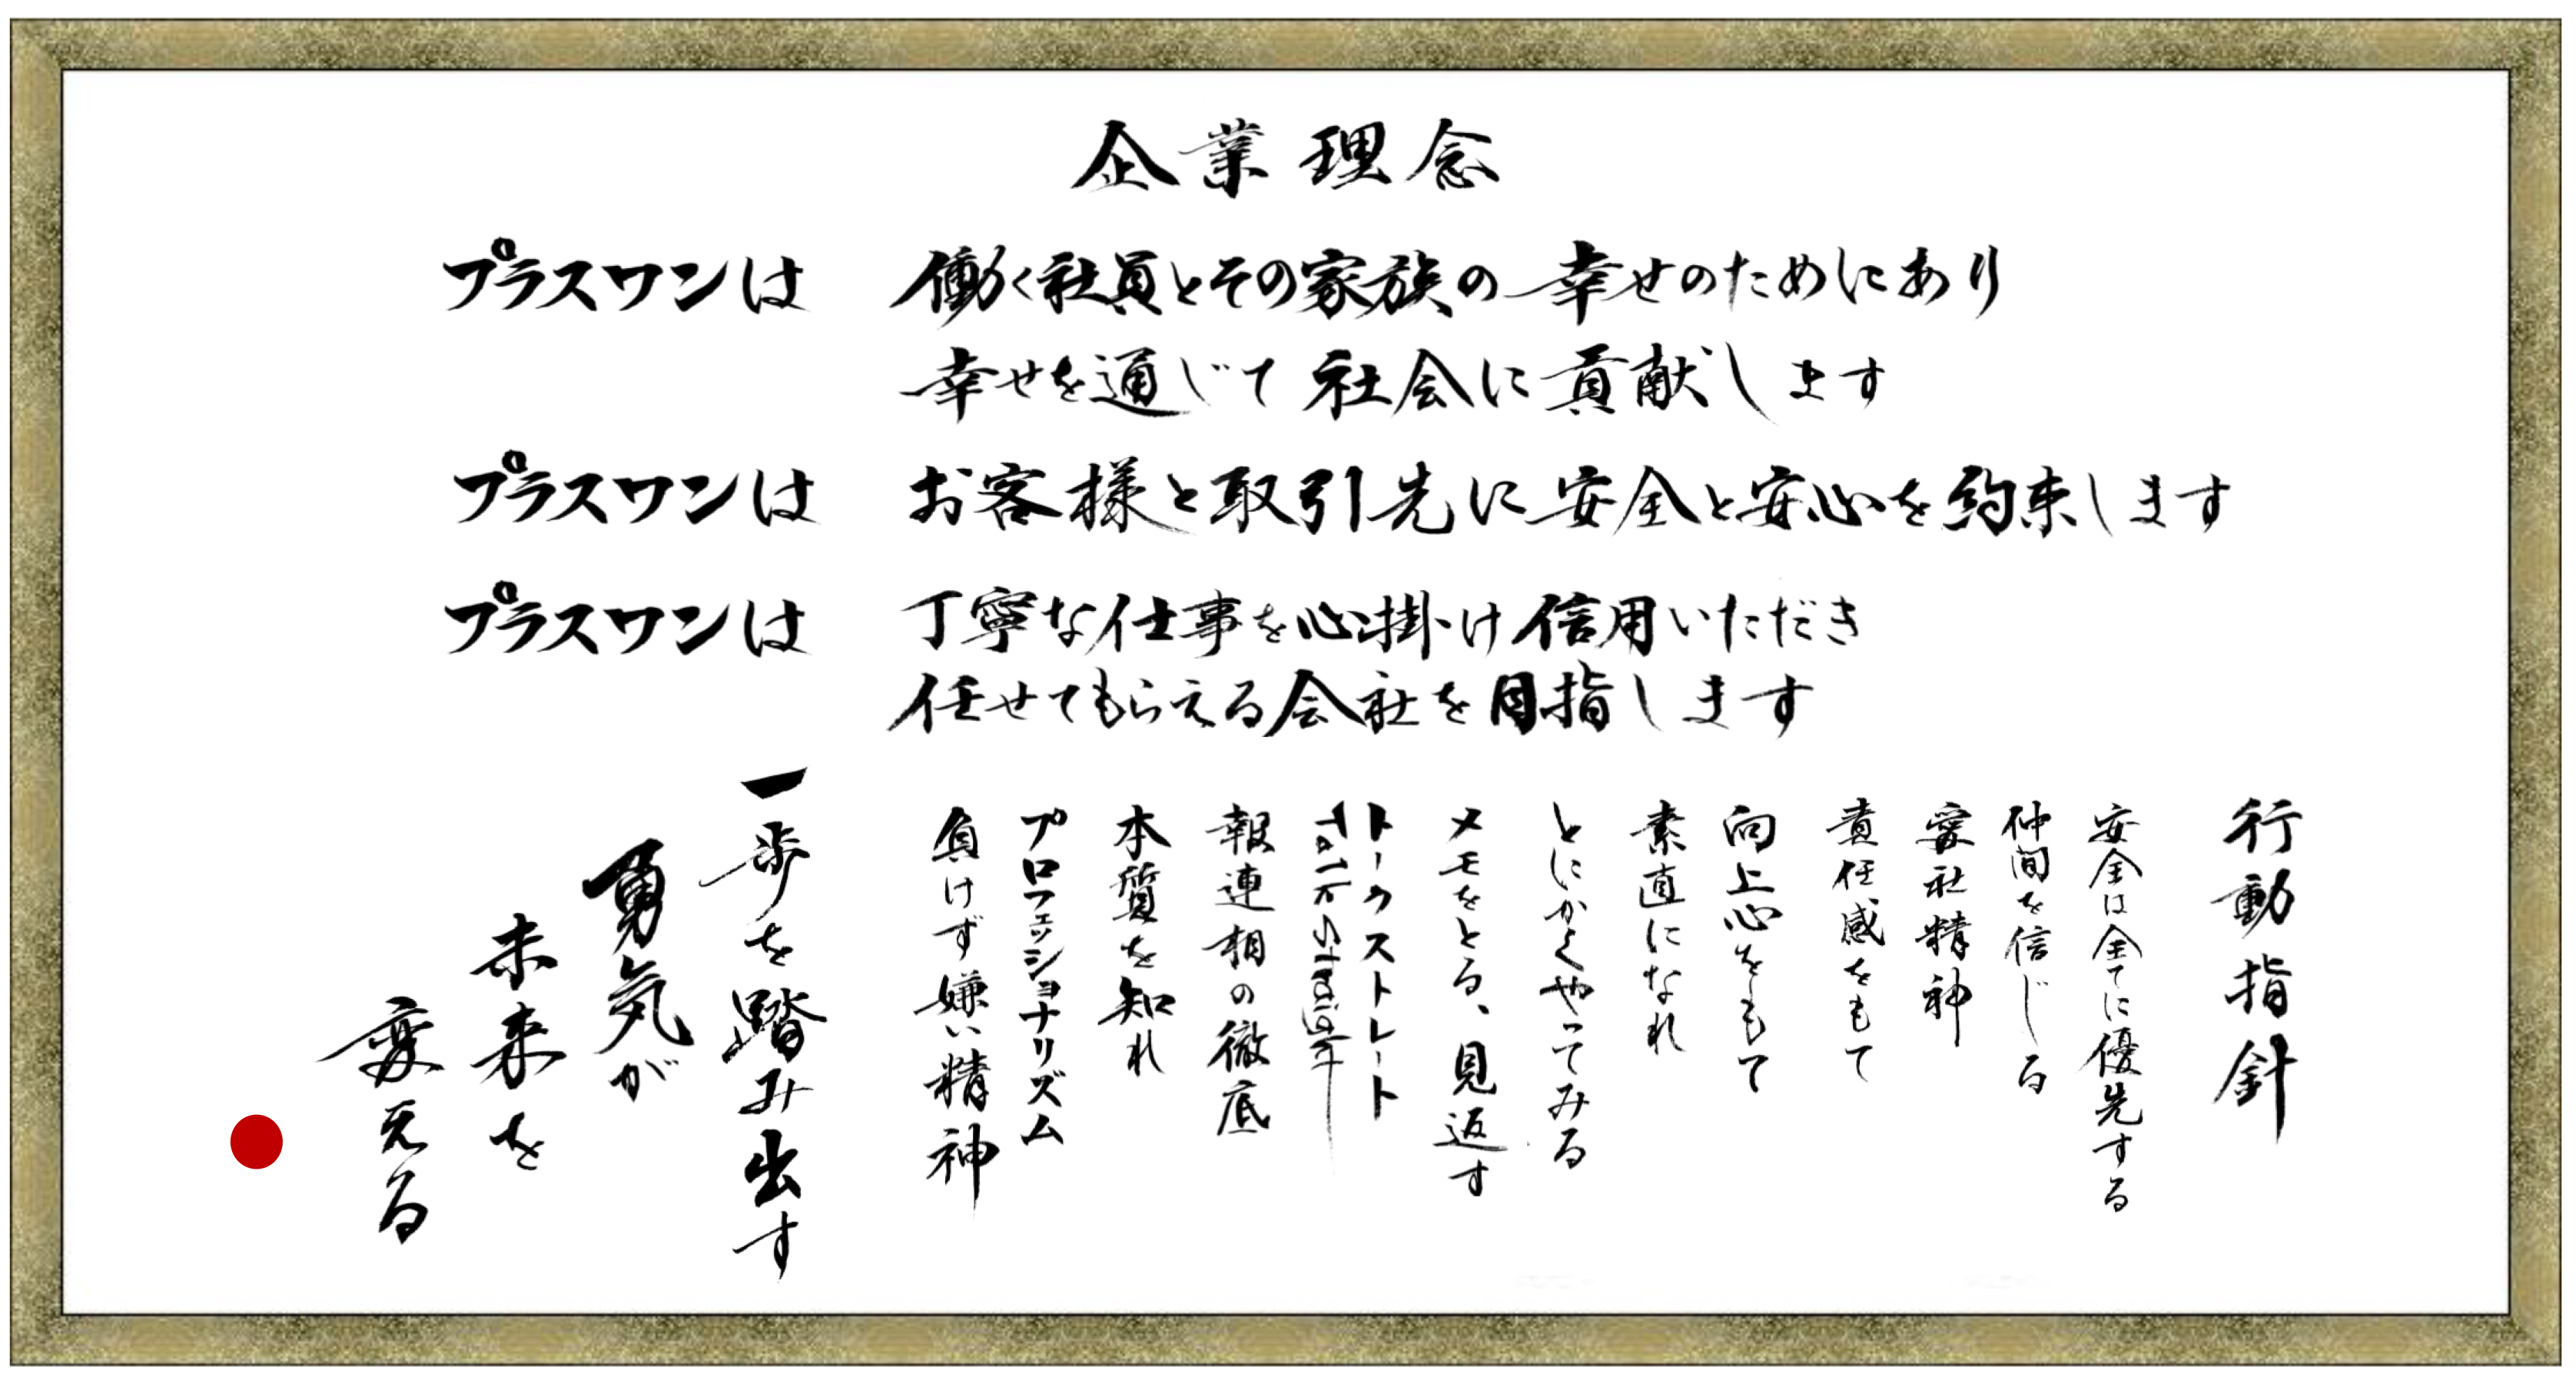 企業理念
プラスワンは 働く社員とその家族の幸せのためにあり
幸せを通じて社会に貢献します
プラスワンは お客様と取引先に安全と安心を約束します
プラスワンは 丁寧な仕事を心掛け信用いただき
任せてもらえる会社を目指します
行動指針
安全は全てに優先する
仲間を信じる
愛社精神
責任感をもて
向上心をもて
素直になれ
とにかくやってみる
メモをとる、見返す
トークストレート
Talk Straight
報連相の徹底
本質を知れ
プロフェッショナリズム
負けず嫌い精神
一歩を踏み出す
勇気が
未来を
変える